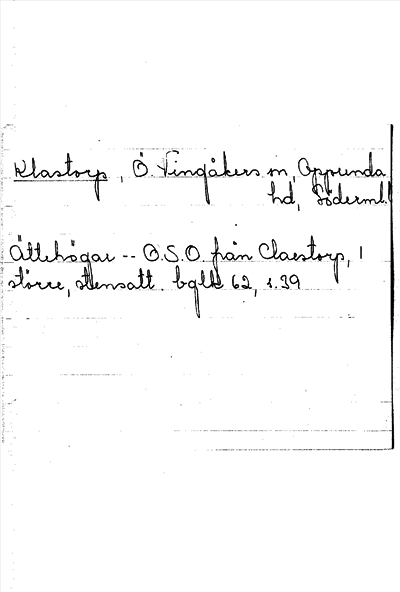 Klastorp, Ö. Vingåkers sn, Oppunda
hd, Söderml.
Ättehögar -- O.S.O. från Claestorp, 1
större, stensatt. bglk 62, s. 39